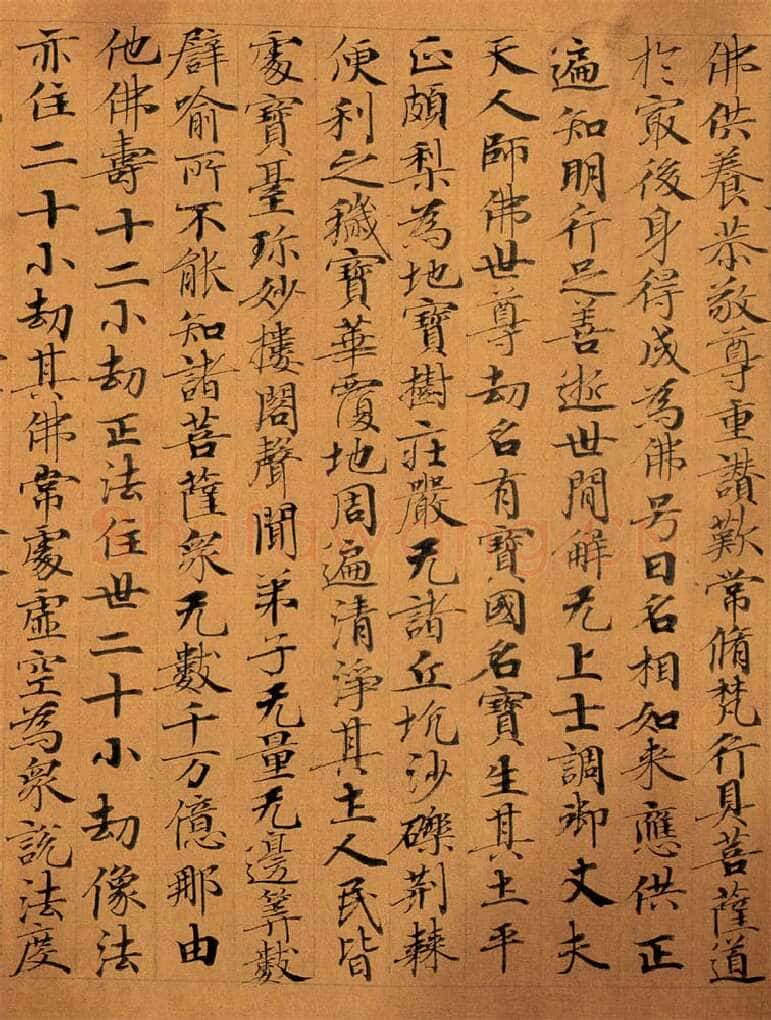 佛供養恭敬尊重讃歎常脩梵行具菩薩道
於㝡後身得成為佛号曰名相如来應供正
遍知明行足善逝世間解无上士調御丈夫
天人師佛世尊劫名有寶國名寶生其土平
正頗梨為地寶樹莊嚴无諸丘坑沙礫荆棘
便利之穢寶華覆地周遍清淨其土人民皆
處寶臺珎妙樓閣聲聞弟子无量无邊筭數
辟喻所不能知諸菩薩衆无數千万億那由
他佛壽十二小劫正法住世二十小劫像法
亦住二十小劫其佛常處虛空為衆說法度